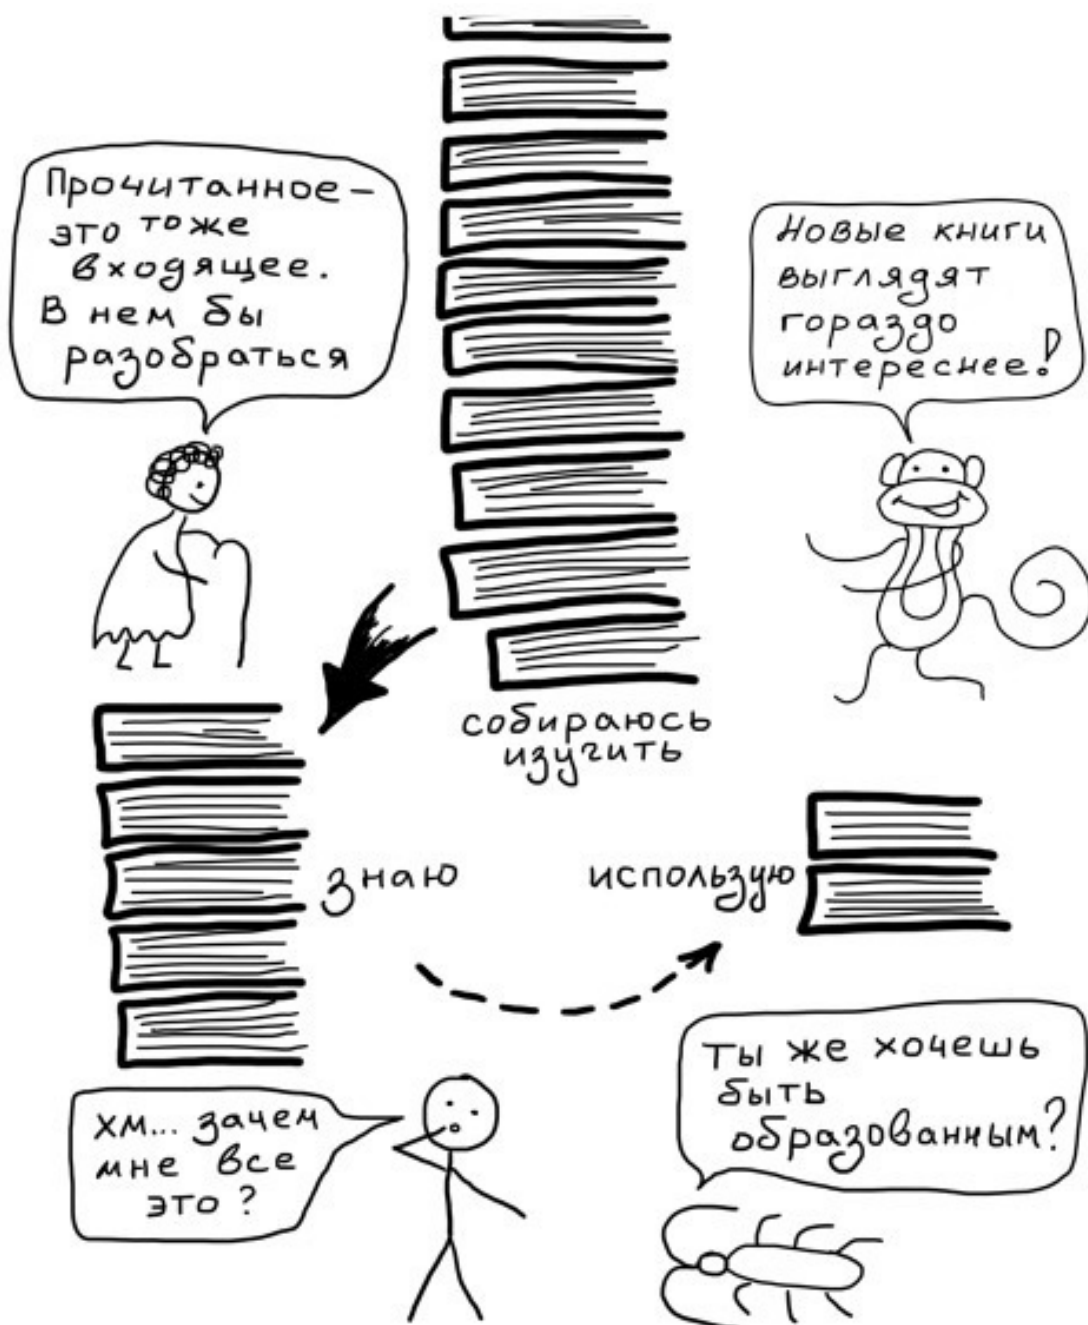 Прочитанное –
это тоже
входящее.
В нем бы
разобраться
Новые книги
выглядят
гораздо
интереснее!
собираюсь
изучить
знаю
использую
хм... зачем
мне все
это?
Ты же хочешь
быть
образованным?